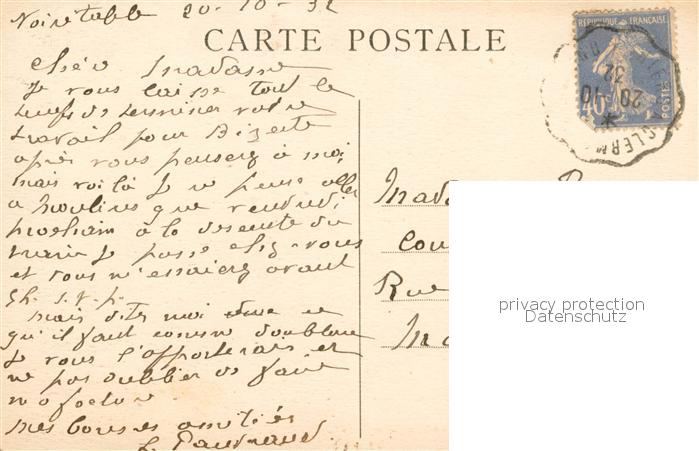 Noirétable 20-10-32
CARTE POSTALE
RÉPUBLIQUE FRANÇAISE
40c
POSTES
20 10
32
CLERM
Chère Madame
Je vous laisse tout le
temps de terminer votre
travail pour Bizerte
après vous penserez à moi
mais voilà je ne peux aller
a Moulins que vendredi
prochain à la descente du
train je passe chez vous
et vous m'essaierez avant
4h. s.v.p.
mais dites moi ce
qu'il faut comme doublure
je vous l'apporterais et
ne pas oublier de faire
ma facture
mes bonnes amitiés
Madame
Rue
privacy protection
Datenschutz